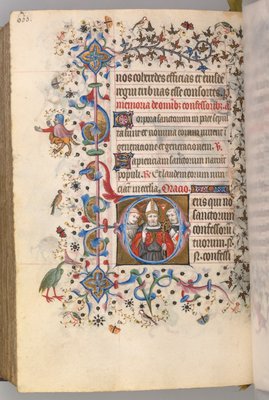 nos coherdes efficias et eiusdē
regni tribuas esse consortes. P
memoria de omīb; confessorib; añ
Corpora sanctorum in pace sepul
ta sunt et nomina eorum
generatione et generationem. V
Sapienciam sanctorum narrēt
populi. R Et laudem eorum nun
ciat ecclesia. Oracio.
eus qui nos
sanctorum
confessorū
tuorum. N.
N. confessi